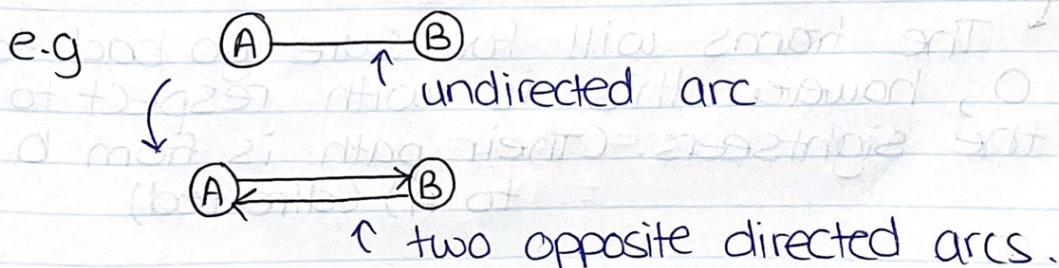 e.g A B
↑ undirected arc
A B
↑ two opposite directed arcs.